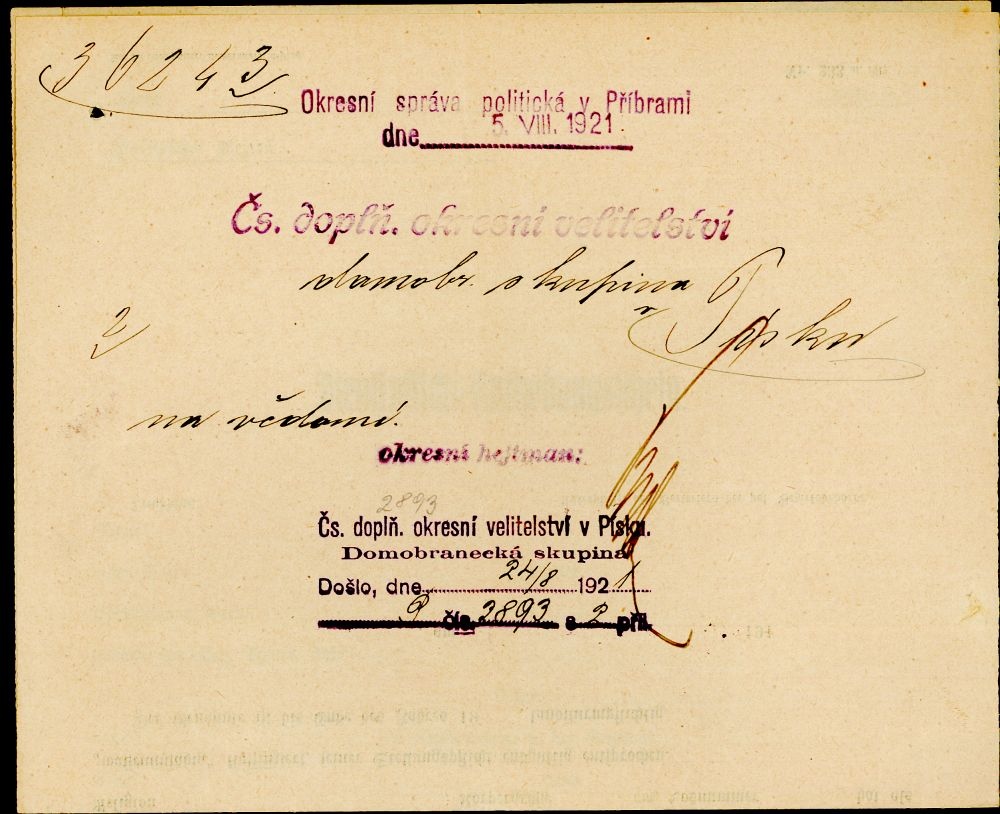 36243
Okresní správa politická v Příbrami
dne 5. VIII. 1921
Čs. doplň. okresní velitelství
domobr. skupina
v Písku
2
na vědomí.
okresní hejtman:
2893
Čs. doplň. okresní velitelství v Písku.
Domobranecká skupina
Došlo, dne 24/8 1921
čís. 2893 s 2 příl.